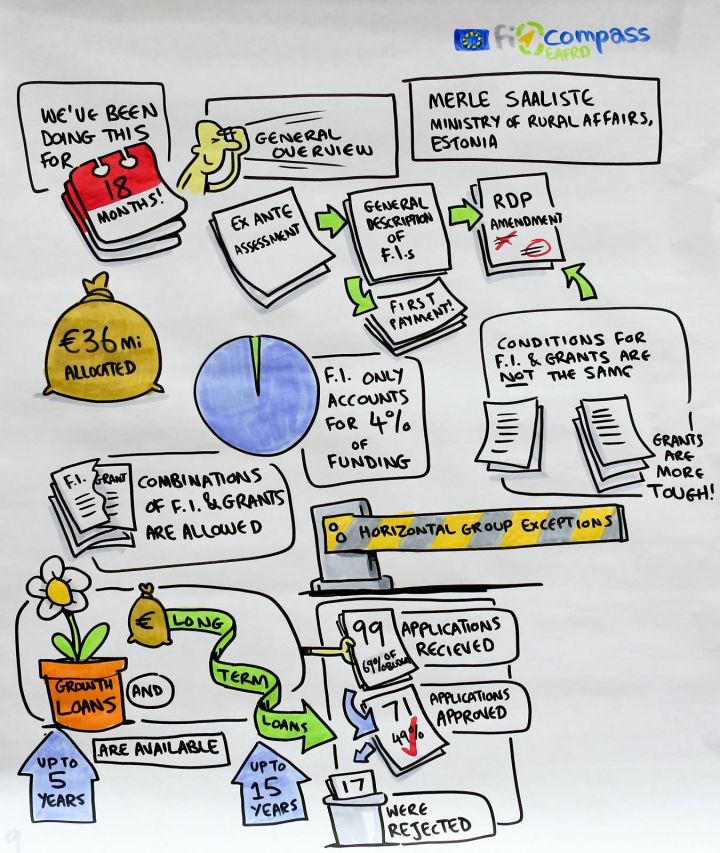 fi compass
EAFRD
WE'VE BEEN
DOING THIS
FOR
18
MONTHS!
GENERAL
OVERVIEW
MERLE SAALISTE
MINISTRY OF RURAL AFFAIRS,
ESTONIA
EX ANTE
ASSESSMENT
GENERAL
DESCRIPTION
OF
F.I.s
RDP
AMENDMENT
FIRST
PAYMENT!
€36 Mi
ALLOCATED
F.I. ONLY
ACCOUNTS
FOR 4%
OF
FUNDING
CONDITIONS FOR
F.I. & GRANTS ARE
NOT THE SAME
GRANTS
ARE
MORE
TOUGH!
F.I. GRANT
COMBINATIONS
OF F.I. & GRANTS
ARE ALLOWED
HORIZONTAL GROUP EXCEPTIONS
GROWTH
LOANS
AND
€
LONG
TERM
LOANS
ARE AVAILABLE
UP TO
5
YEARS
UP TO
15
YEARS
99
69% OF BUDGET
APPLICATIONS
RECIEVED
71
49%
APPLICATIONS
APPROVED
17
WERE
REJECTED